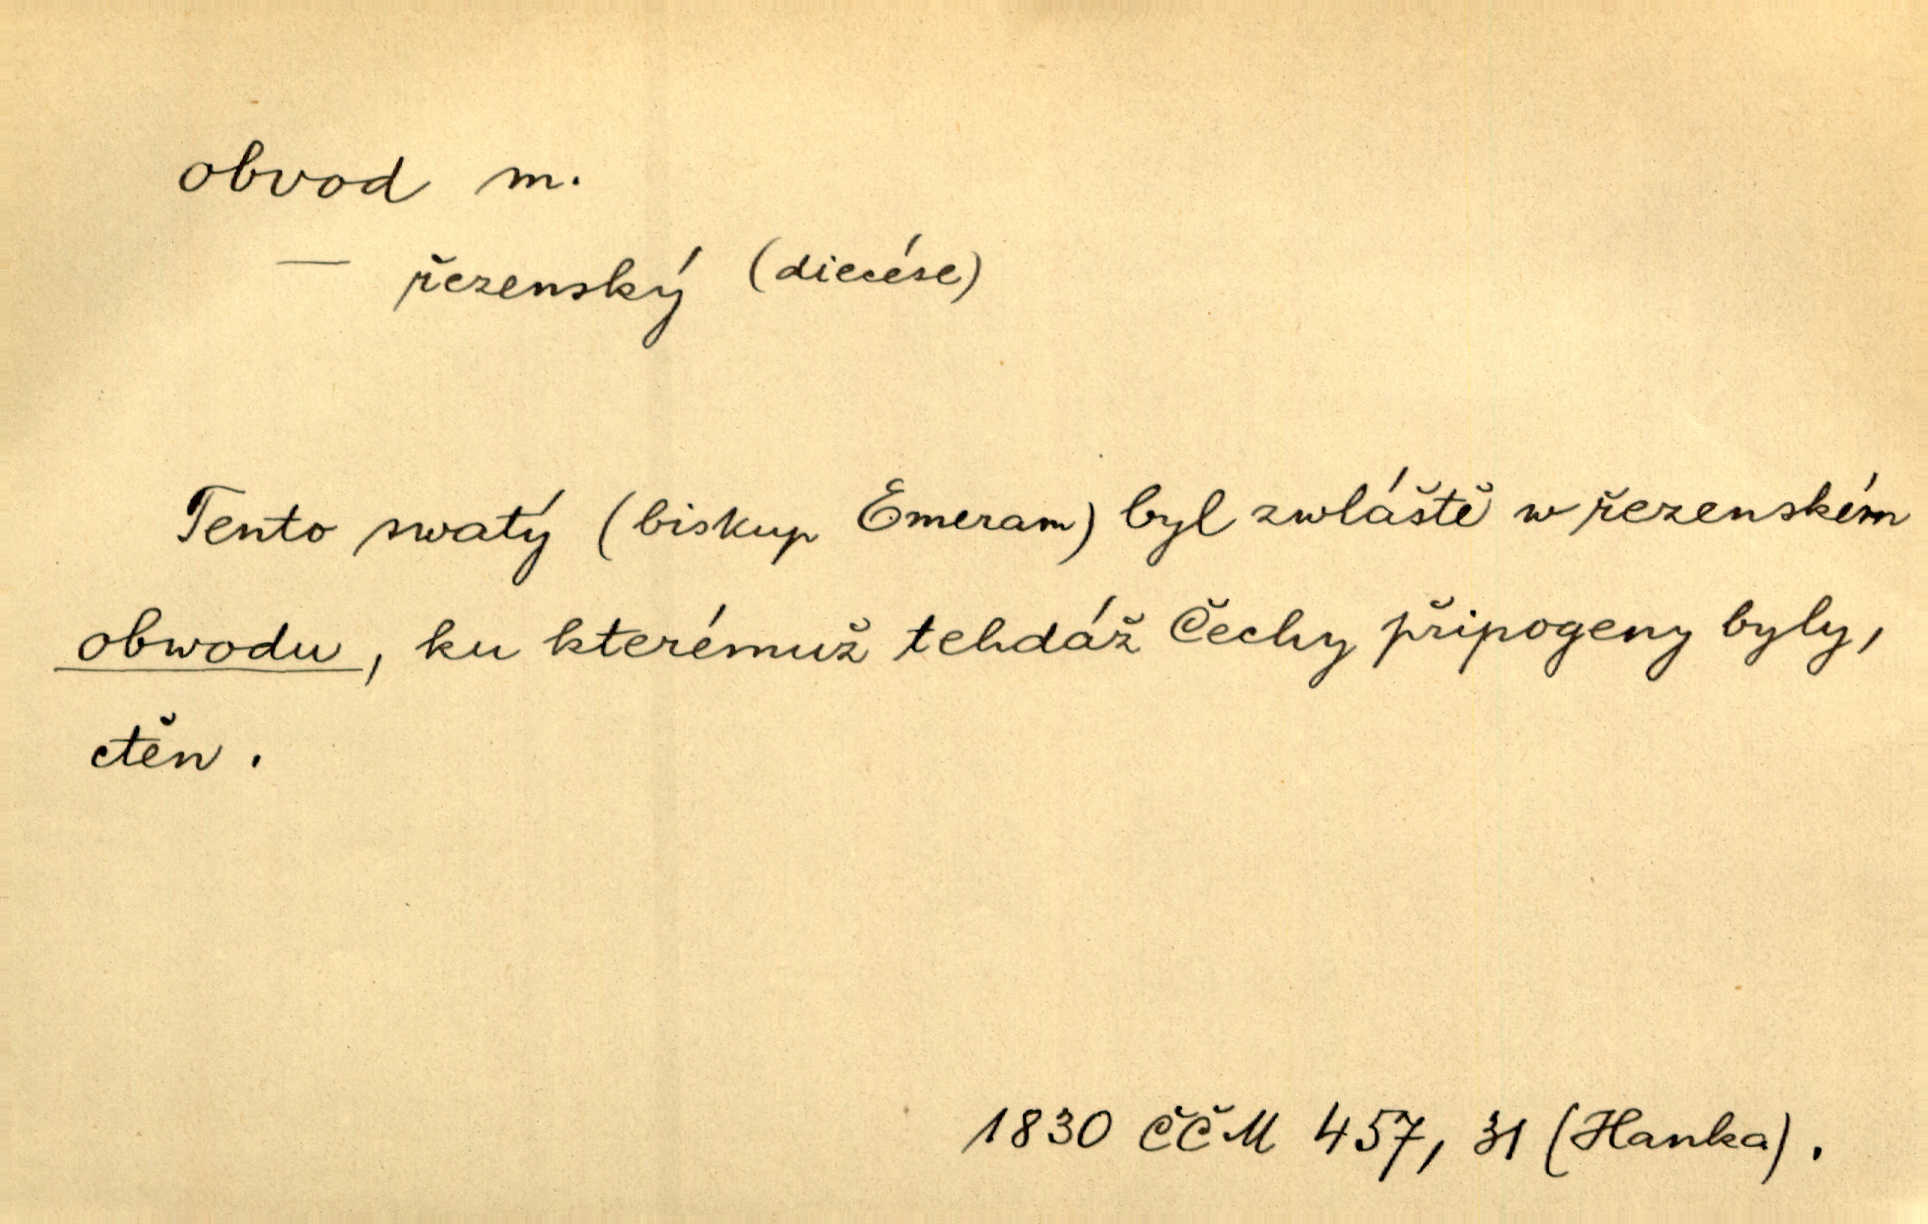 obvod m.
— řezenský (diecése)
Tento swatý (biskup Emeram) byl zwláště w řezenském
obwodu, ku kterémuž tehdáž Čechy připogeny byly,
ctěn.
1830 ČČM 457, 31 (Hanka).